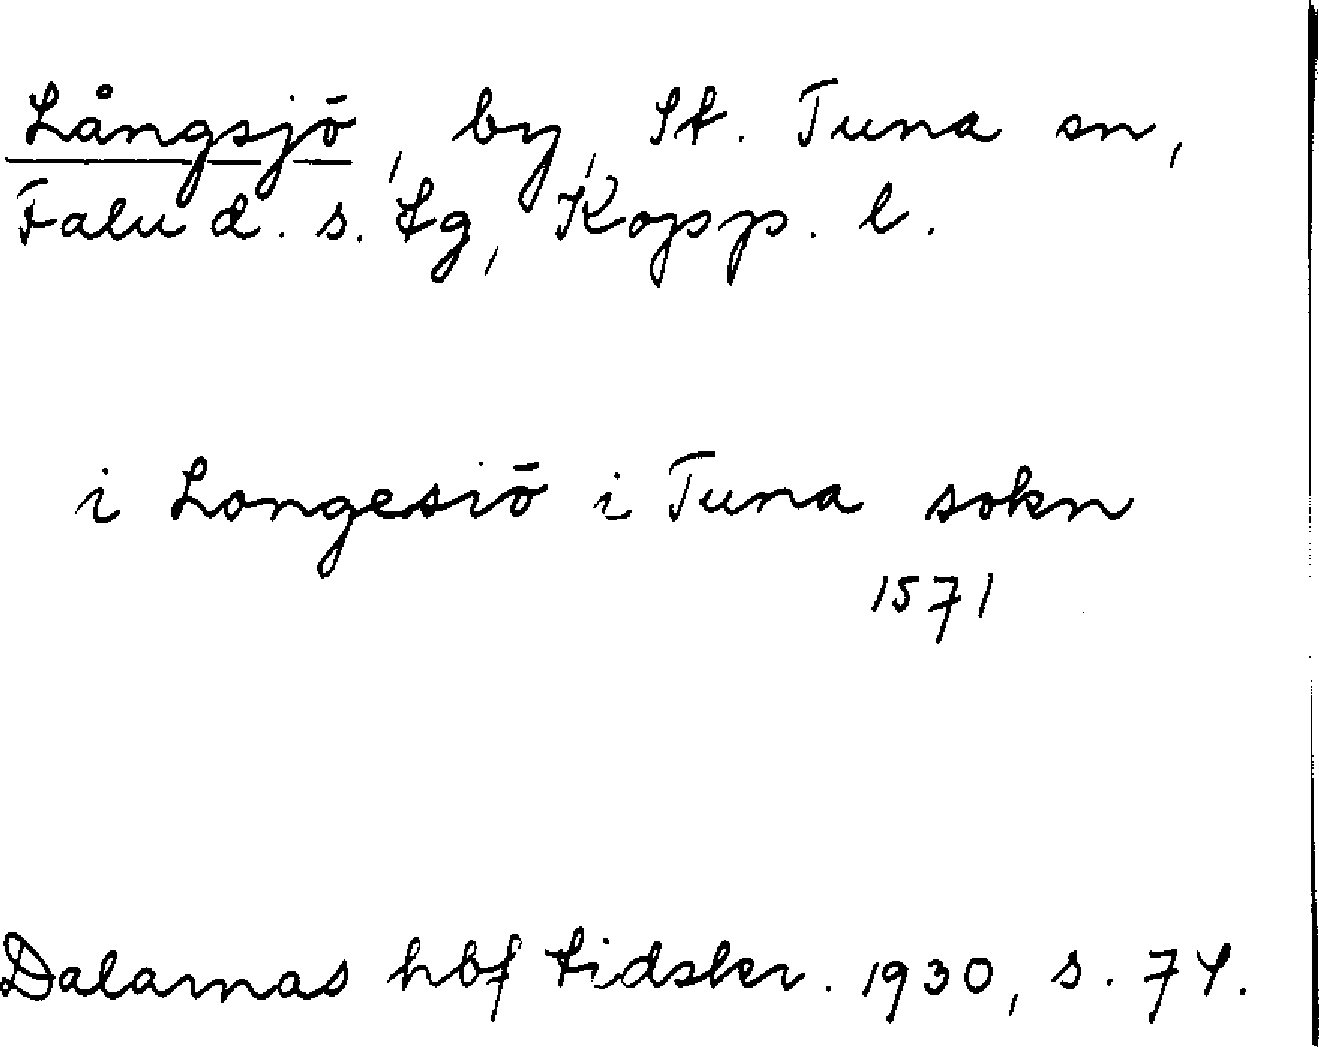 Långsjö, by, St. Tuna sn,
Falu d. s. tg, Kopp. l.
i Longesiö i Tuna sokn
1571
Dalarnas hbf tidskr. 1930, s. 74.